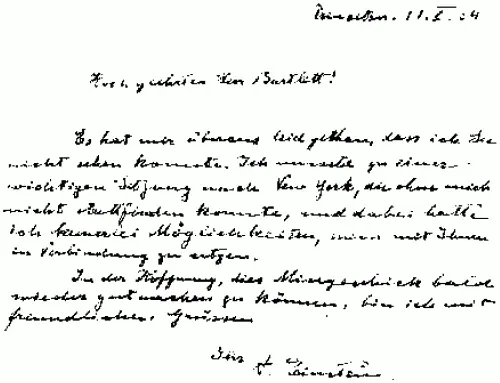 Princeton. 11.X.34
Hochgeehrter Herr Bartlett!
Es hat mir überaus leid gethan, dass ich Sie
nicht sehen konnte. Ich musste zu einer
wichtigen Sitzung nach New York, die ohne mich
nicht stattfinden konnte, und dabei hatte
ich keinerlei Möglichkeiten, mich mit Ihnen
in Verbindung zu setzen.
In der Hoffnung, dies Missgeschick bald
wieder gutmachen zu können, bin ich mit
freundlichen Grüssen
Ihr A. Einstein.